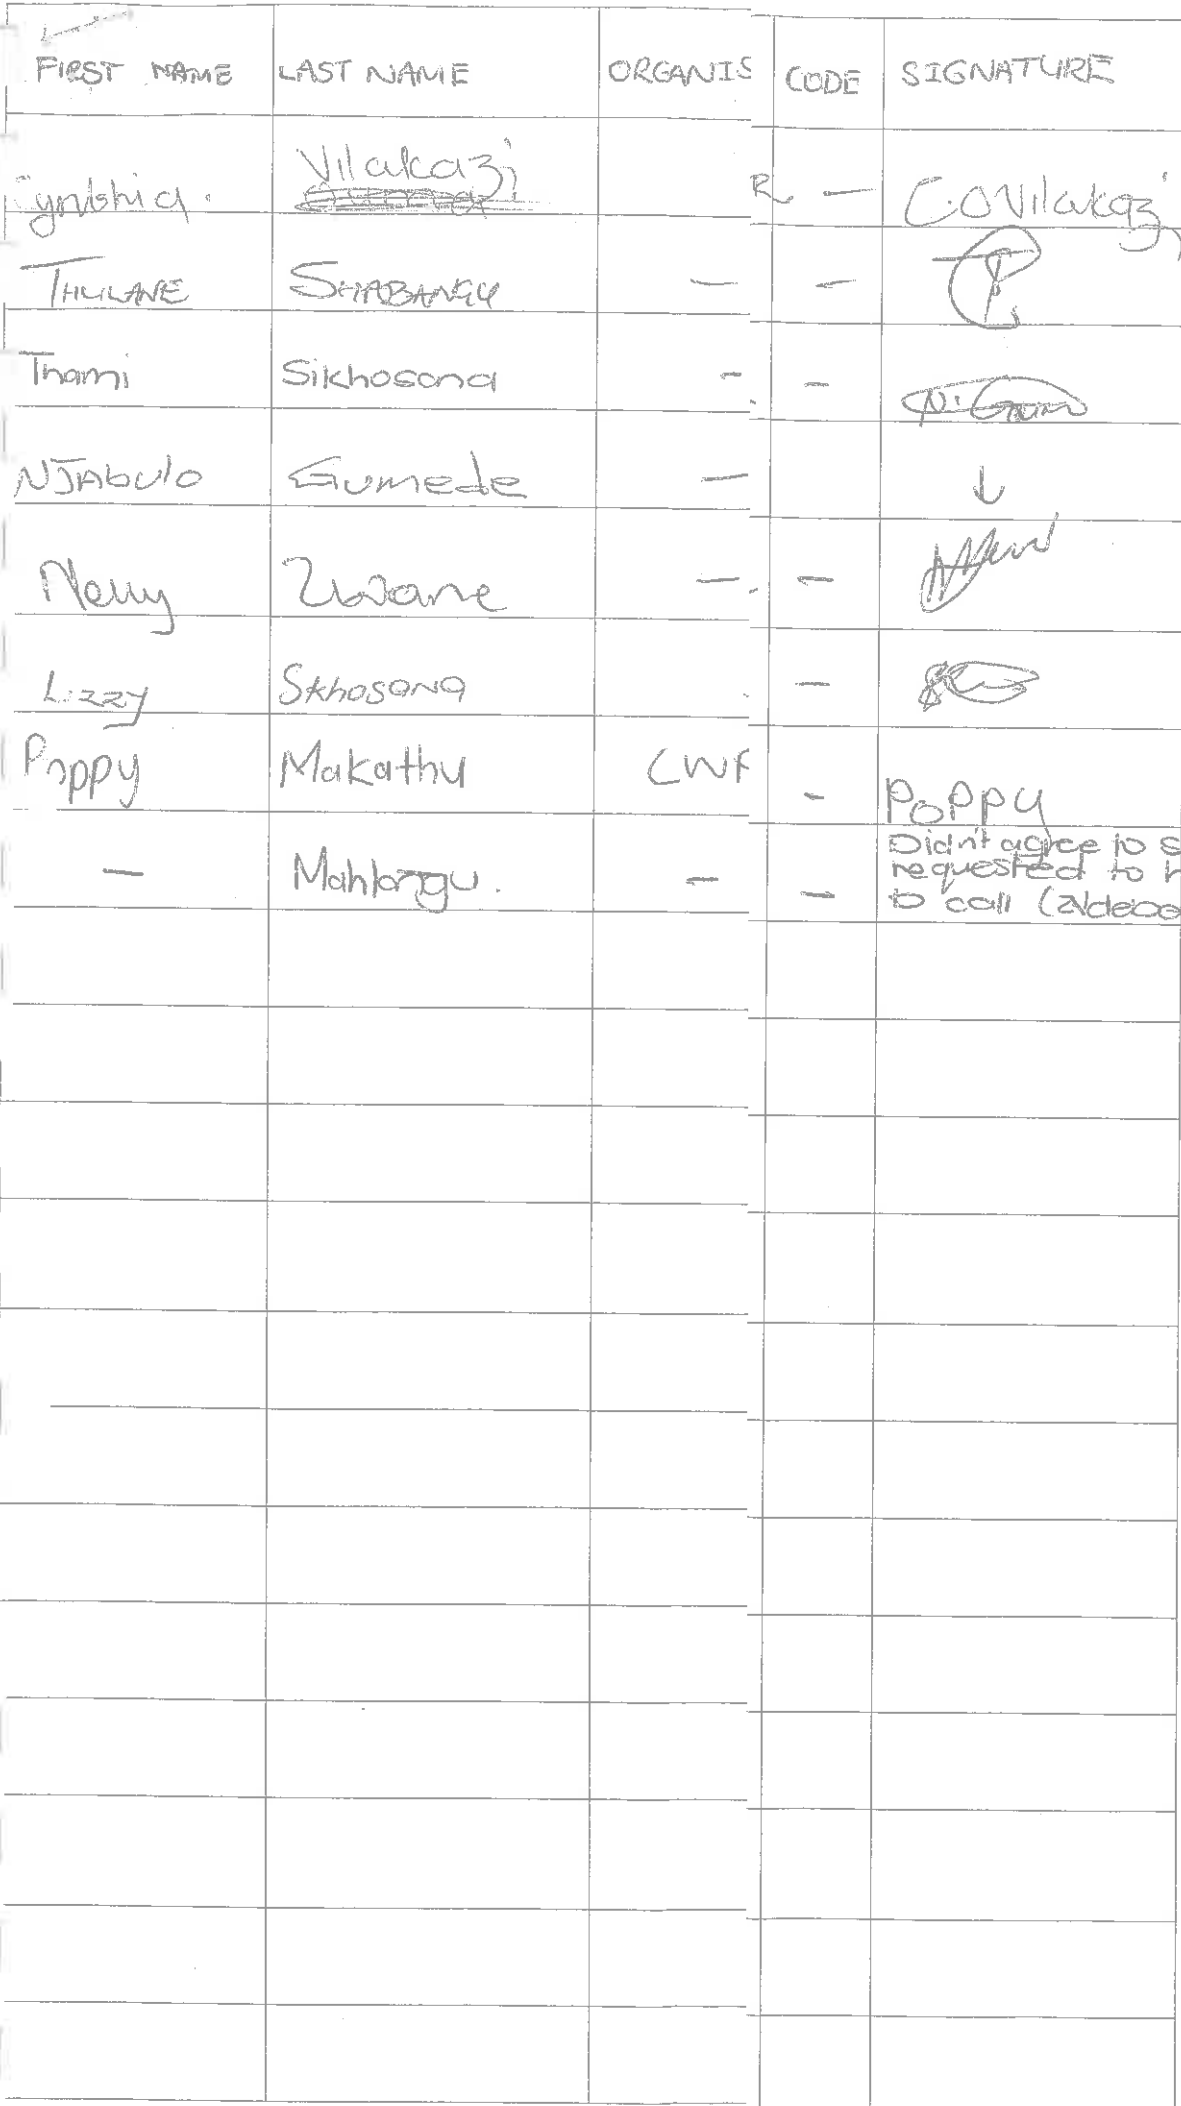 FIRST NAME LAST NAME ORGANIS CODE SIGNATURE
Cynthia. Vilakazi R — C.O Vilakazi
THULANE SHABANGU — —
Thami Sikhosana - -
NJAbulo Gumede — ↓
Nelly Zwane — —
Lizzy Skhosana —
Poppy Makathu CWP - Poppy
— Mahlangu. — — Didn't agree to s
requested to h
to call